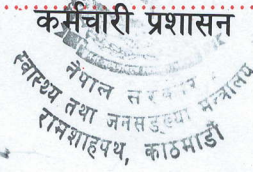 कर्मचारी प्रशासन
नेपाल सरकार
स्वास्थ्य तथा जनसङ्ख्या मन्त्रालय
रामशाहपथ, काठमाडौं